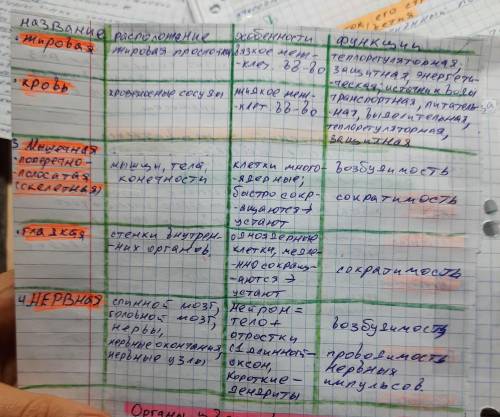 название расположение особенности функции
· жировая жировая прослойка вязкое меж- теплорегуляторная,
-клет. вв-во защитная, энергети-
ческая, источник воды
· кровь кровеносные сосуды жидкое меж- транспортная, питатель-
-клет. вв-во ная, выделительная,
теплорегуляторная,
защитная
3. Мышечная
· поперечно- мышцы, тела, клетки много- возбудимость
полосатая конечности -ядерные,
(скелетная) быстро сокр- сократимость
-ащаются→
устают
· гладкая стенки внутрен- одноядерные
-них органов, клетки, медле-
-нно сокращ- сократимость
-аются →
устают
4. НЕРВНАЯ спинной мозг, Нейрон =
головной мозг, тело + возбудимость
нервы, отростки
нервные окончания, (1 длинной- проводимость
нервные узлы аксон, нервных
короткие- импульсов.
дендриты
Органы